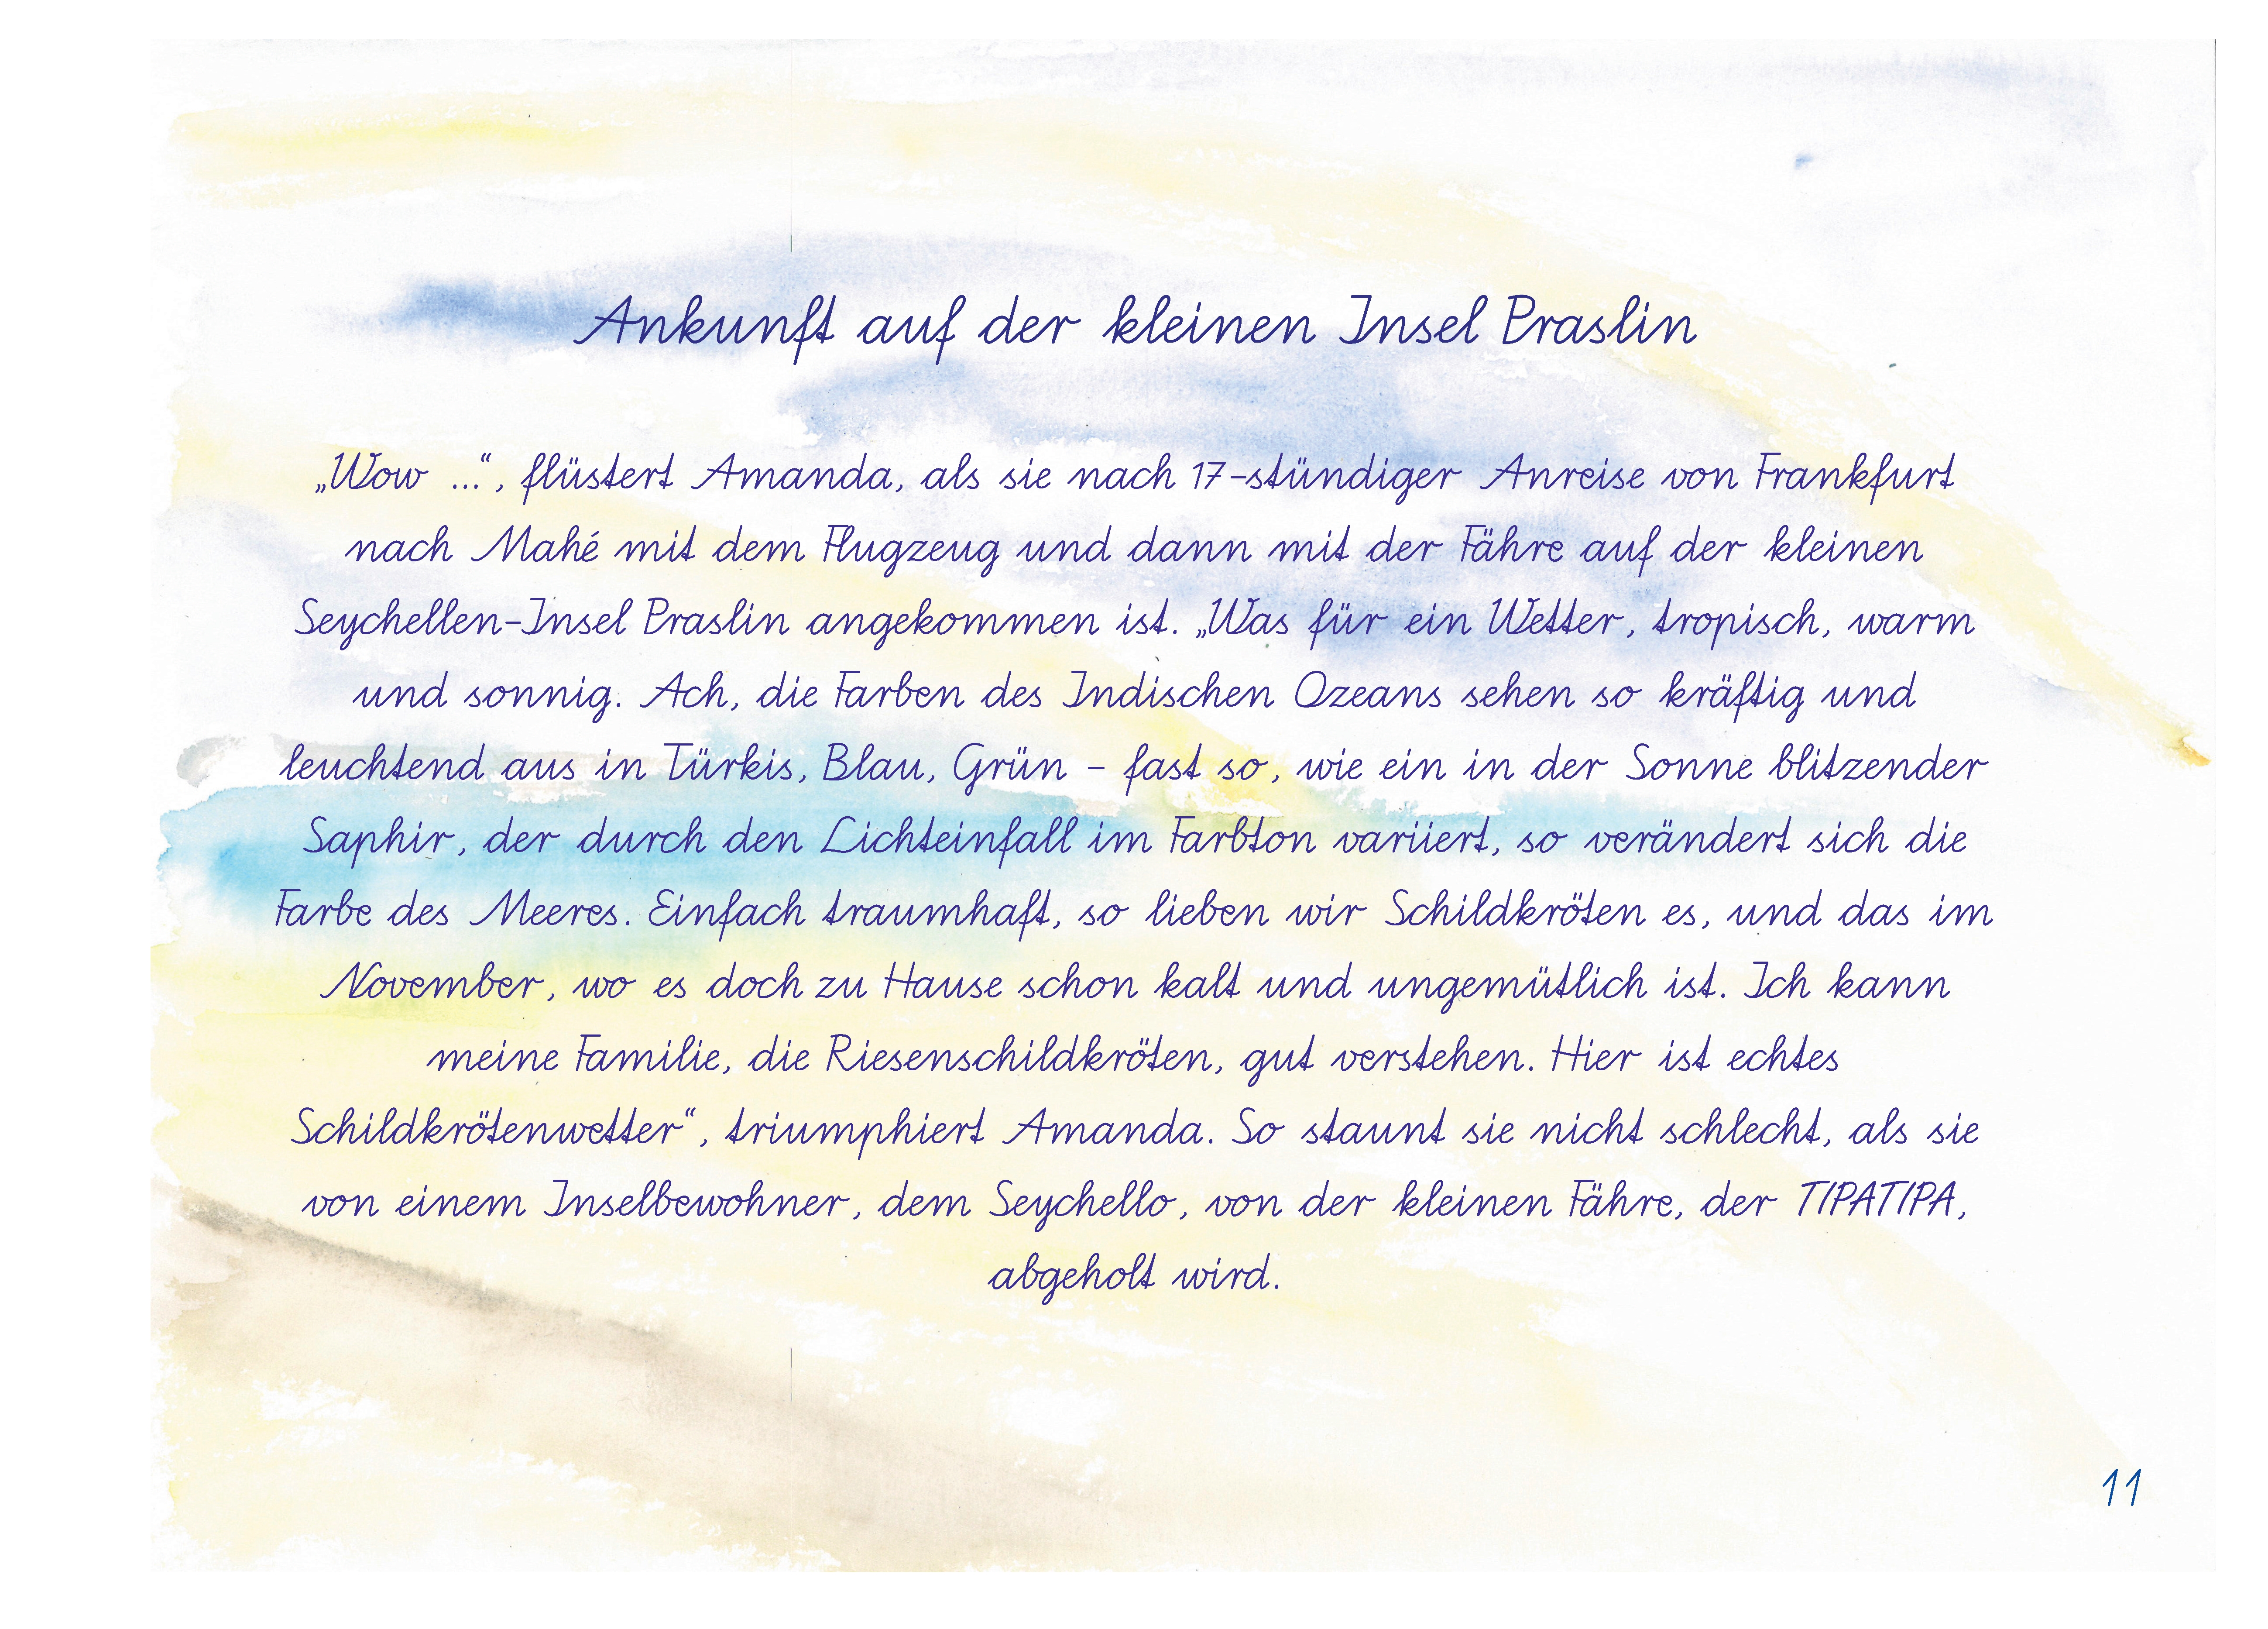 Ankunft auf der kleinen Insel Praslin
„Wow ...“, flüstert Amanda, als sie nach 17-stündiger Anreise von Frankfurt
nach Mahé mit dem Flugzeug und dann mit der Fähre auf der kleinen
Seychellen-Insel Praslin angekommen ist. „Was für ein Wetter, tropisch, warm
und sonnig. Ach, die Farben des Indischen Ozeans sehen so kräftig und
leuchtend aus in Türkis, Blau, Grün – fast so, wie ein in der Sonne blitzender
Saphir, der durch den Lichteinfall im Farbton variiert, so verändert sich die
Farbe des Meeres. Einfach traumhaft, so lieben wir Schildkröten es, und das im
November, wo es doch zu Hause schon kalt und ungemütlich ist. Ich kann
meine Familie, die Riesenschildkröten, gut verstehen. Hier ist echtes
Schildkrötenwetter“, triumphiert Amanda. So staunt sie nicht schlecht, als sie
von einem Inselbewohner, dem Seychello, von der kleinen Fähre, der TIPATIPA,
abgeholt wird.
11